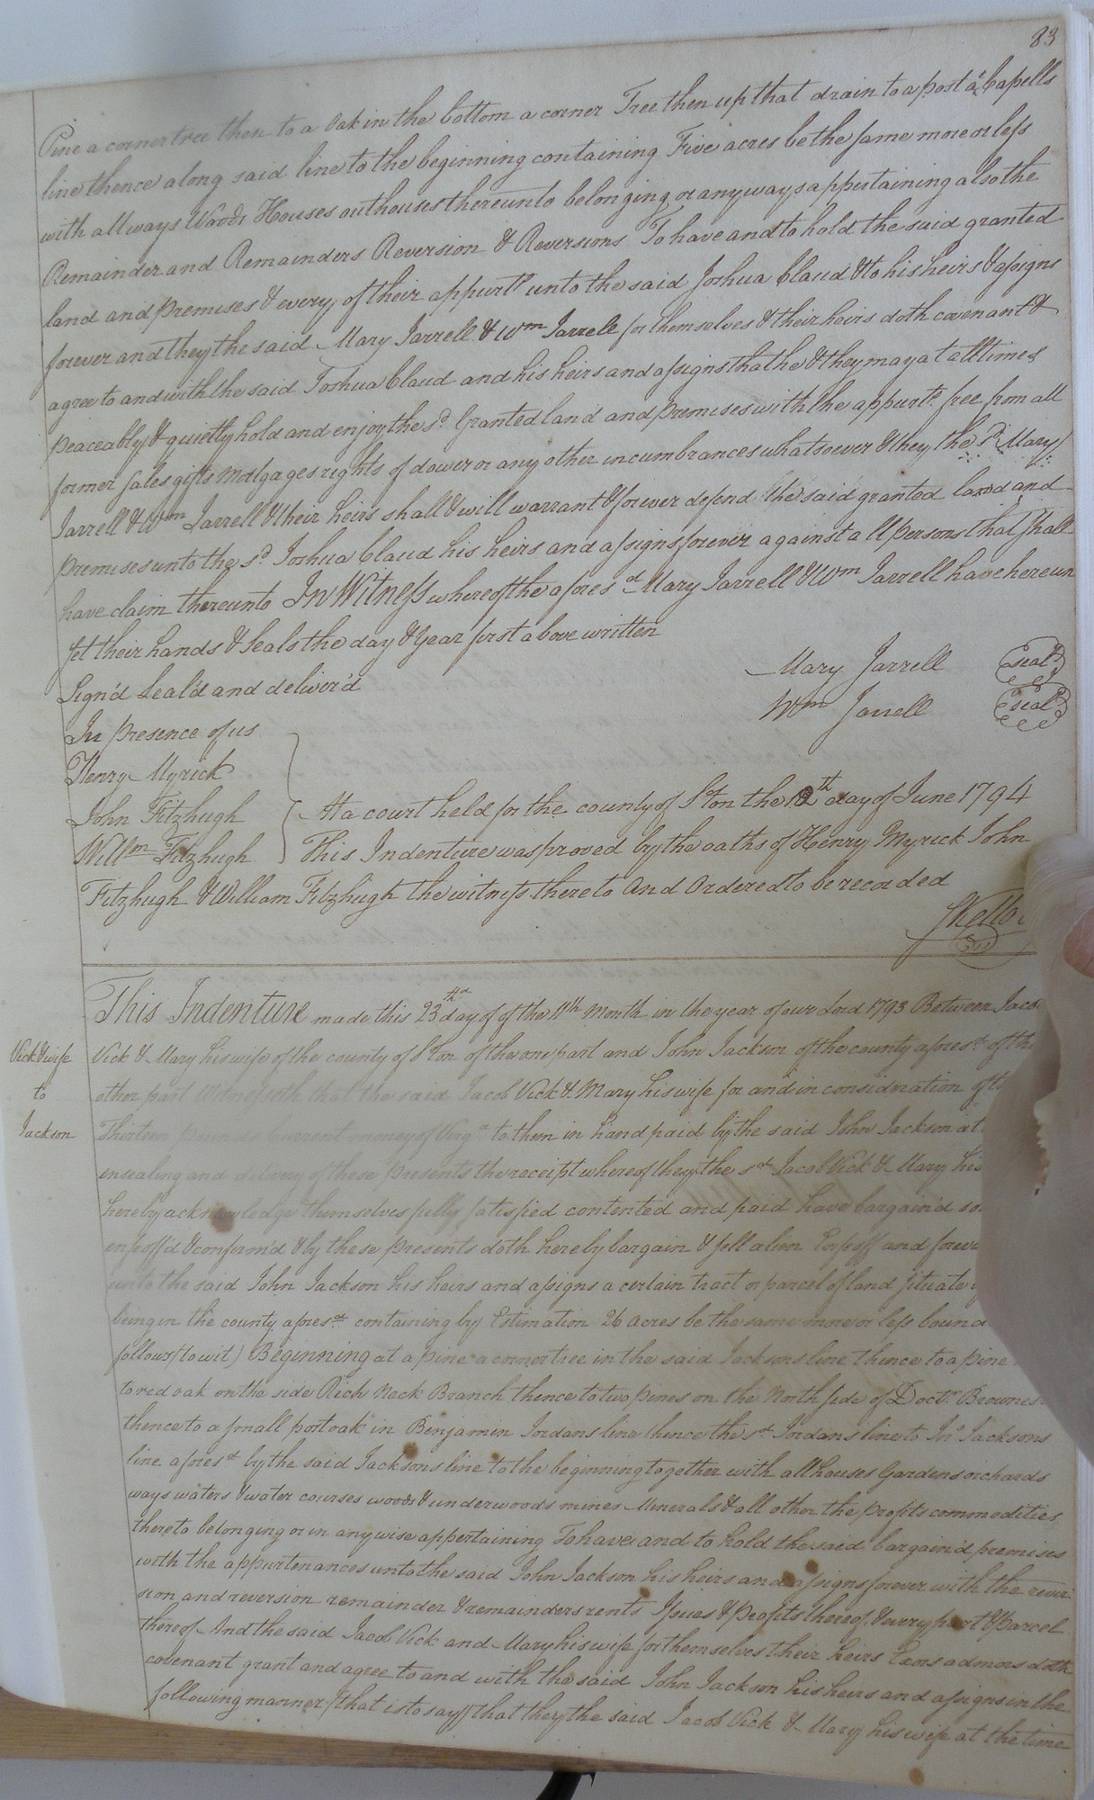 83
Pine a corner tree then to a Oak in the bottom a corner Tree then up that drain to a post a Capells
line thence along said line to the beginning containing Five acres be the same more or less
with all ways Woods Houses outhouses thereunto belonging or any ways appertaining also the
Remainder and Remainders Reversion & Reversions To have and to hold the said granted
land and premises & every of their appurts unto the said Joshua Claud & to his heirs & assigns
forever and they the said Mary Jarrell & Wm Jarrell for themselves & their heirs doth covenant &
agree to and with the said Joshua Claud and his heirs and assigns that he & they may at all times
peaceably & quietly hold and enjoy the sd. Granted land and premises with the appurts. free from all
former sales gifts Mortgages rights of dower or any other incumbrances whatsoever & they the sd Mary
Jarrell & Wm Jarrell & their heirs shall & will warrant & forever defend the said granted land and
premises unto the sd Joshua Claud his heirs and assigns forever against all persons that shall
have claim thereunto In Witness whereof the aforesd Mary Jarrell & Wm Jarrell have hereun
set their hands & seals the day & Year first above written
Sign'd Seal'd and deliver'd
Mary Jarrell (seal)
In presence of us
Wm Jarrell (seal)
Henry Myrick
John Fitzhugh
At a court held for the county of Ston the 12th day of June 1794
Willm Fitzhugh
This Indenture was proved by the oaths of Henry Myrick John
Fitzhugh & William Fitzhugh the witness thereto And Ordered to be recorded
This Indenture made this 23d day of of the 11th Month in the year of our Lord 1793 Between Jacob
Vick & wife
to
Jackson
Vick & Mary his wife of the county of Ston of the one part and John Jackson of the county aforesd of the
other part Witnesseth that the said Jacob Vick & Mary his wife for and in consideration of
Thirteen pounds current money of Virga to them in hand paid by the said John Jackson at
ensealing and delivery of these presents the receipt whereof they the sd Jacob Vick & Mary his
hereby acknowledge themselves fully satisfied contented and paid have bargain'd
enfeoff'd & confirm'd & by these presents doth hereby bargain & sell alien Enfeoff and
unto the said John Jackson his heirs and assigns a certain tract or parcel of land situate
being in the county aforesd containing by Estimation 26 acres be the same more or less
follows (to wit) Beginning at a pine a corner tree in the said Jacksons line thence to a pine
to red oak on the side Rich Neck Branch thence to two pines on the North side of Doctr. Brownes
thence to a small post oak in Benjamin Jordans line thence the sd Jordans line to Jno Jacksons
line aforesd by the said Jacksons line to the beginning together with all houses Gardens orchards
ways waters & water courses woods & underwoods mines Minerals & all other the profits commodities
thereto belonging or in any wise appertaining To have and to hold the said bargain'd premises
with the appurtenances unto the said John Jackson his heirs and assigns forever with the rever
sion and reversion remainder & remainders rents Issues & Profits thereof & every part & parcel
thereof And the said Jacob Vick and Mary his wife for themselves their heirs Exors admors doth
covenant grant and agree to and with the said John Jackson his heirs and assigns in the
following manner (that is to say) that they the said Jacob Vick & Mary his wife at the time